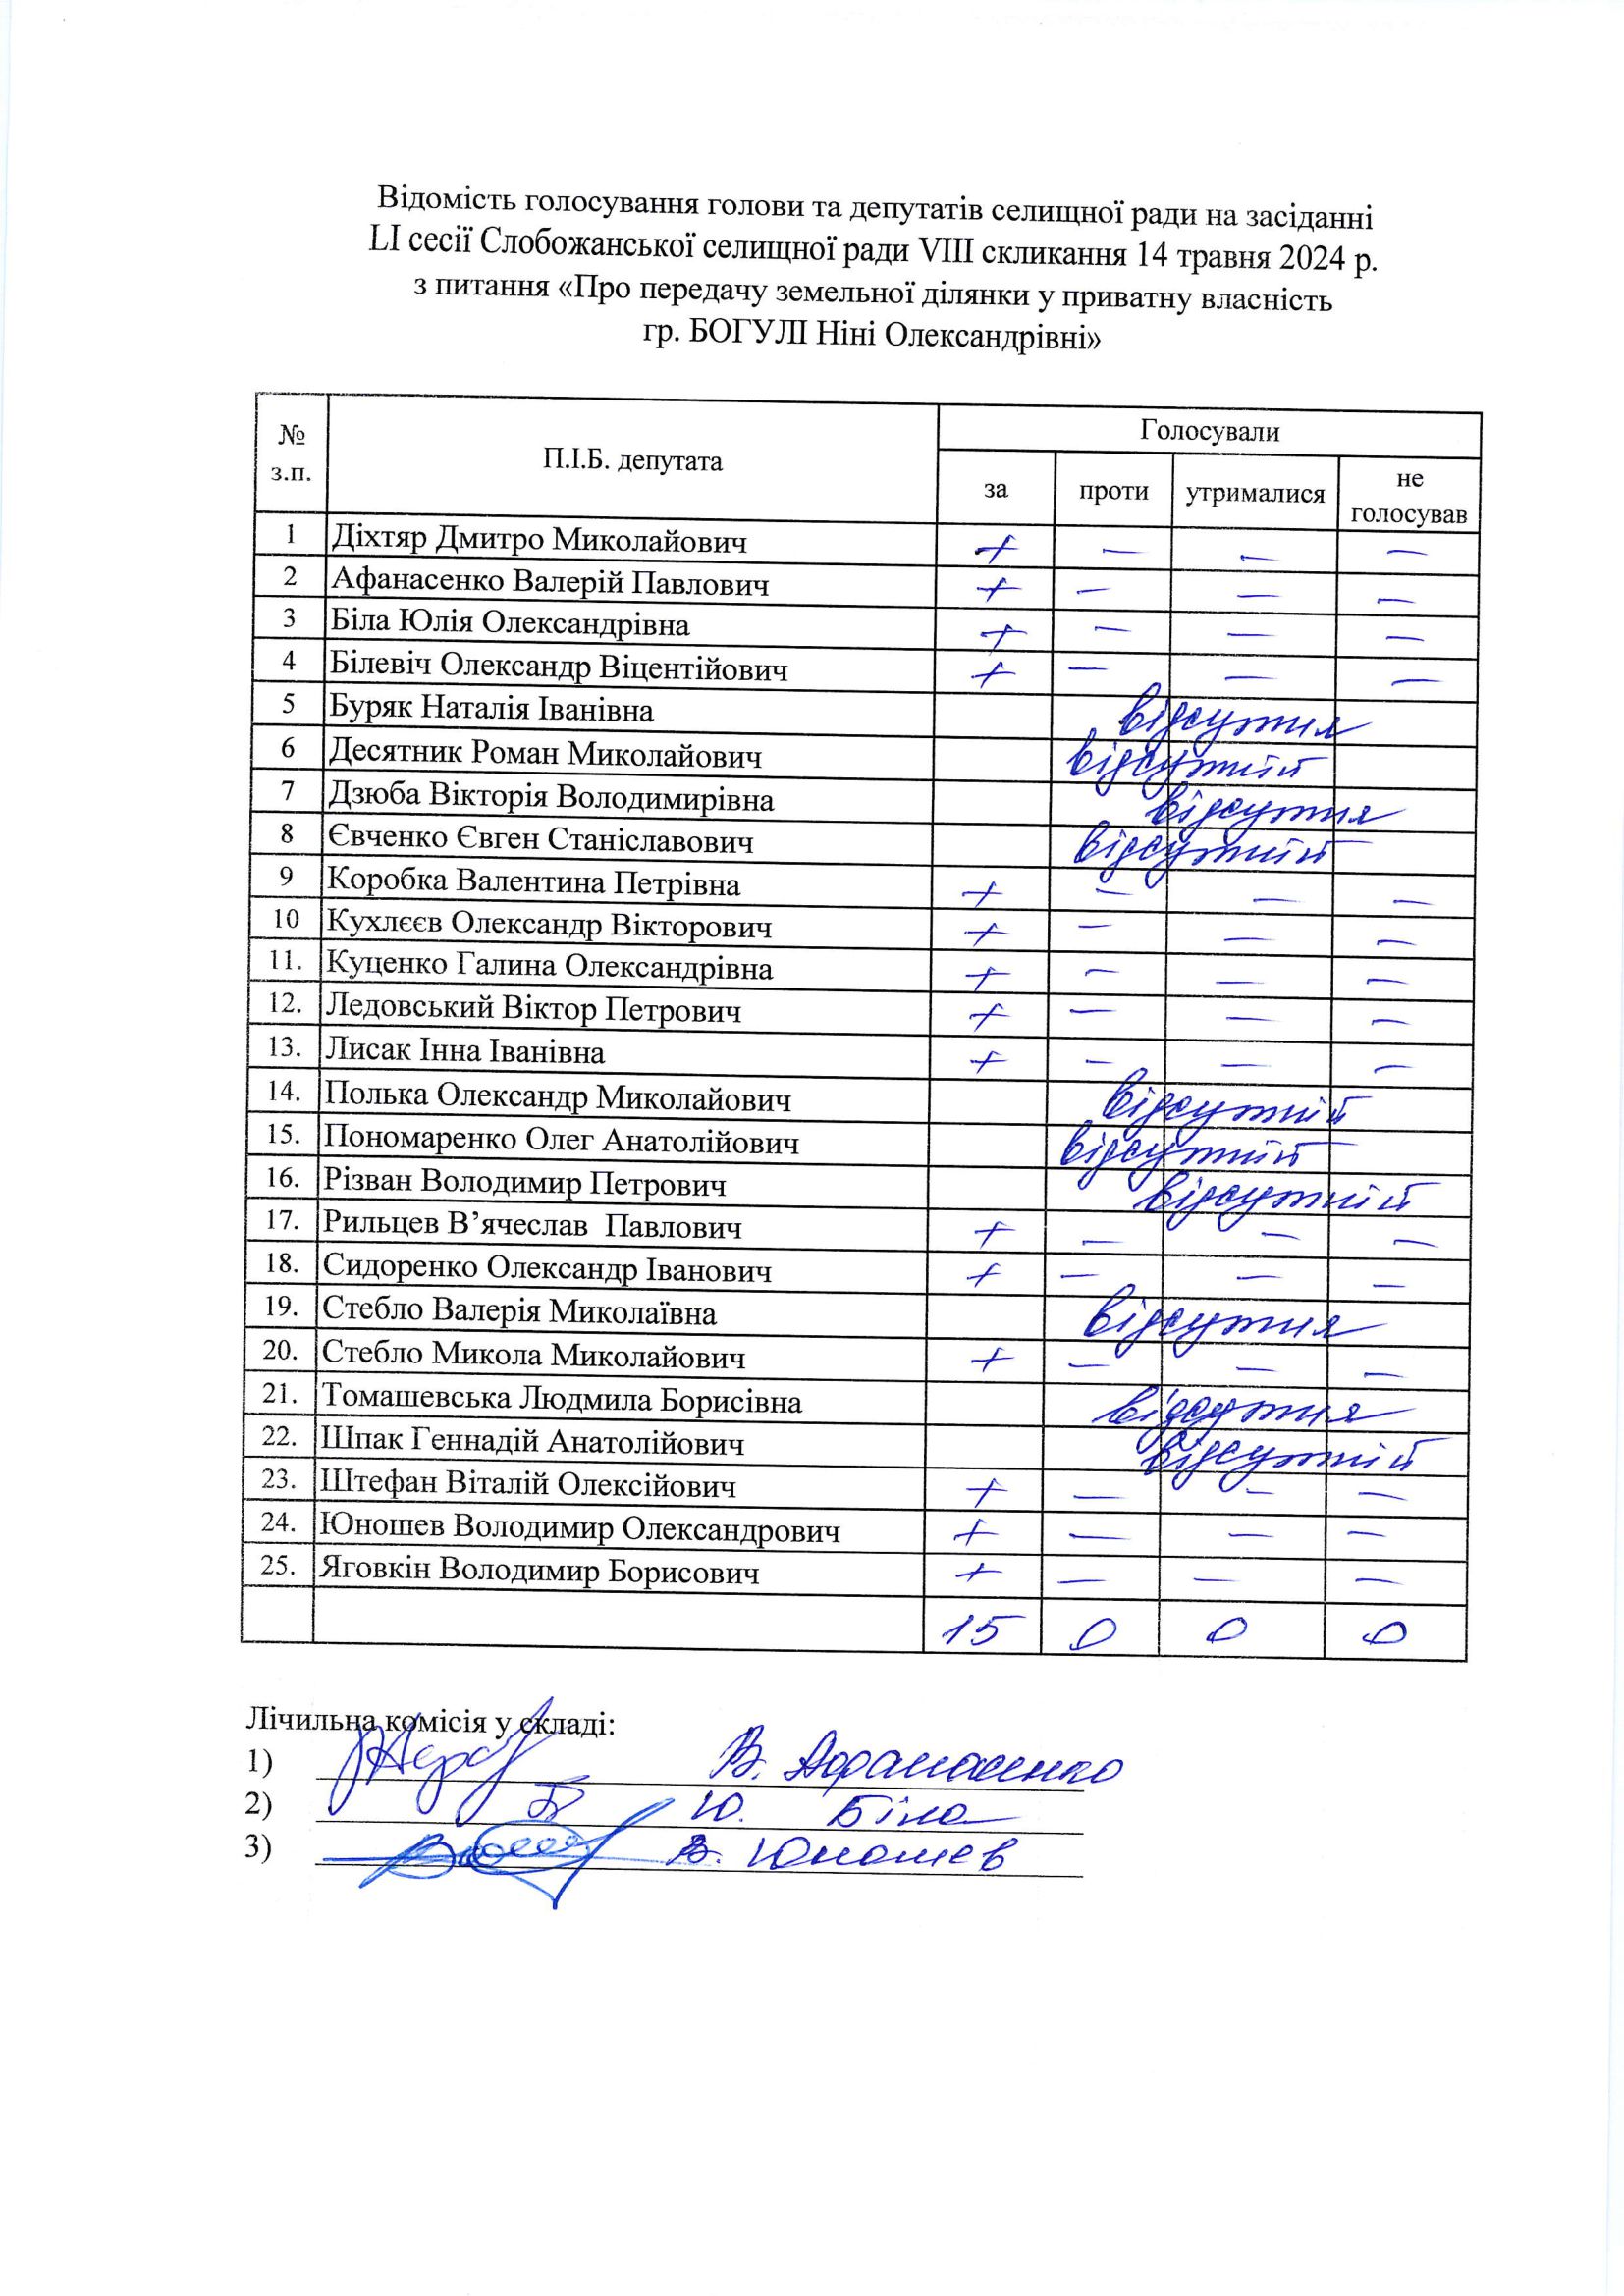 Відомість голосування голови та депутатів селищної ради на засіданні
LI сесії Слобожанської селищної ради VIII скликання 14 травня 2024 р.
з питання «Про передачу земельної ділянки у приватну власність
гр. БОГУЛІ Ніні Олександрівні»
№ з.п. П.І.Б. депутата Голосували
за проти утрималися не голосував
1 Діхтяр Дмитро Миколайович + — — —
2 Афанасенко Валерій Павлович + — — —
3 Біла Юлія Олександрівна + — — —
4 Білевіч Олександр Віцентійович + — — —
5 Буряк Наталія Іванівна відсутня
6 Десятник Роман Миколайович відсутній
7 Дзюба Вікторія Володимирівна відсутня
8 Євченко Євген Станіславович відсутній
9 Коробка Валентина Петрівна + — — —
10 Кухлєєв Олександр Вікторович + — — —
11. Куценко Галина Олександрівна + — — —
12. Ледовський Віктор Петрович + — — —
13. Лисак Інна Іванівна + — — —
14. Полька Олександр Миколайович відсутній
15. Пономаренко Олег Анатолійович відсутній
16. Різван Володимир Петрович відсутній
17. Рильцев В’ячеслав Павлович + — — —
18. Сидоренко Олександр Іванович + — — —
19. Стебло Валерія Миколаївна відсутня
20. Стебло Микола Миколайович + — — —
21. Томашевська Людмила Борисівна відсутня
22. Шпак Геннадій Анатолійович відсутній
23. Штефан Віталій Олексійович + — — —
24. Юношев Володимир Олександрович + — — —
25. Яговкін Володимир Борисович + — — —
15 0 0 0
Лічильна комісія у складі:
1) В. Афанасенко
2) Ю. Біла
3) В. Юношев